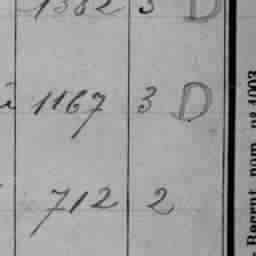 1382 3 D
1167 3 D
712 2
Recrut. nom. nº 1003